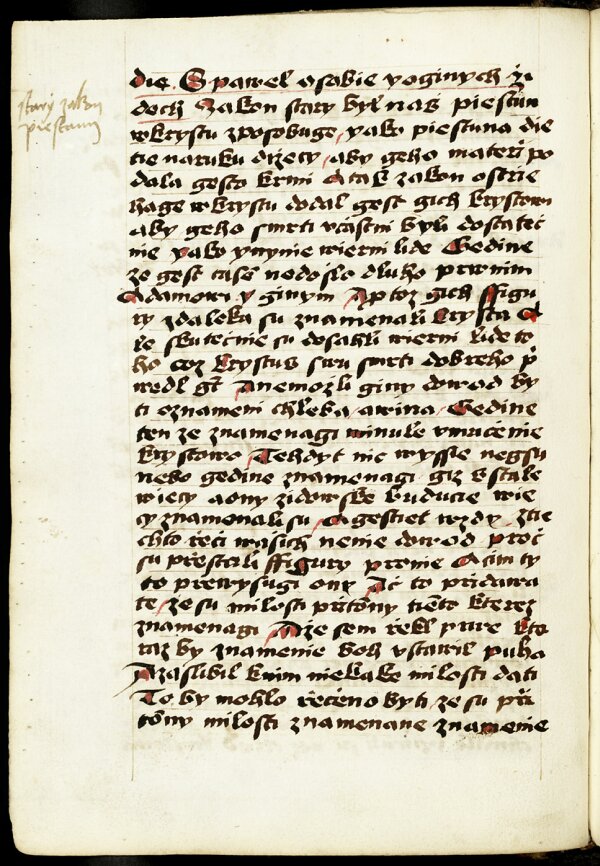 starý zakon
piestunn
die. S pawel o sobie y o ginych ži
doch Zakon stary byl naß piestun
w krystu zposobuge, yako piestuna die
tie na ruku držecy, aby geho mateři po
dala gesto krmi A tak zakon ostrie
hage w krystu dodal gest gich krystowi
aby geho smrti včastni byli dostateč
nie yako ynynie wierni lide Gedine
ze gest čase nedoslo dluho prwnim
Adamowi y ginym Aptoz gich ffigu
ry zdaleka su znamenali krysta A
le skutečnie su dosahli wierni lide to
ho coz krystus swu smrti dobreho př
wedl gt Anemožli giny dowod by
ti oznameni chleba, a wina, Gedine
ten ze znamenagi minule vmučenie
krystowo Tehdyt nic wyssie negsu
nebo gedine znamenagi giz v stale
wiecy a ony židowske buducie wie
cy znamenali su, A gestiet wzdy, z tie
chto řeči wasich nenie dowod proč
su přestali ffigury prwnie A čim ty
to prewysugi ony Ač to přidawa
te, že su milosti přitōny tiemto kterez
znamenagi Aže sem řekl prwe kte
raz by znamenie boh vstawil puho
A zaslibil k nim niekake milosti dati
To by mohlo řečeno byti ze su při
tōny milosti znamenane znamenie